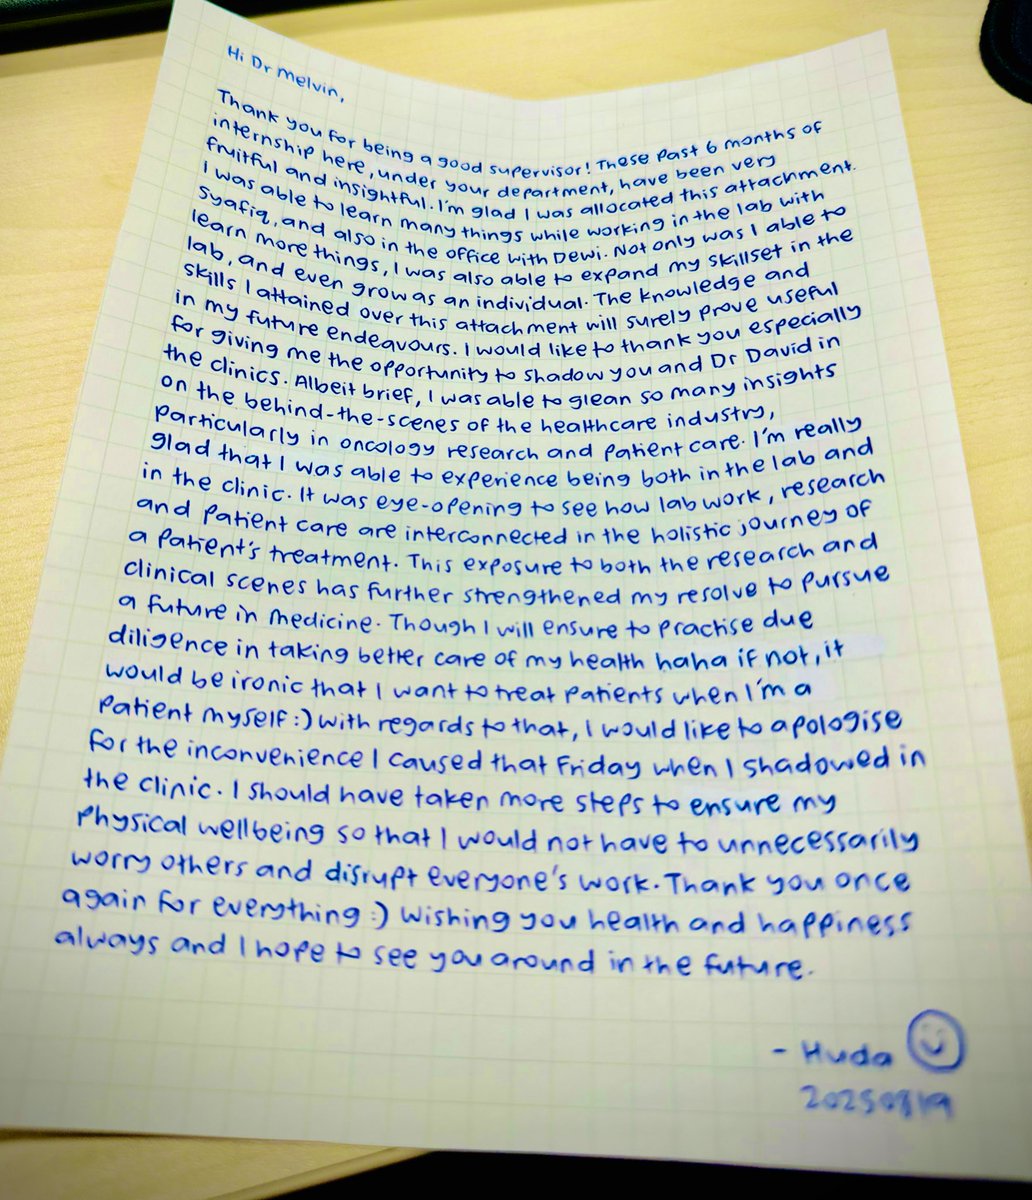 Hi Dr Melvin,
Thank you for being a good supervisor! These past 6 months of
internship here, under your department, have been very
fruitful and insightful. I'm glad I was allocated this attachment.
I was able to learn many things while working in the lab with
Syafiq, and also in the office with Dewi. Not only was I able to
learn more things, I was also able to expand my skillset in the
lab, and even grow as an individual. The knowledge and
skills I attained over this attachment will surely prove useful
in my future endeavours. I would like to thank you especially
for giving me the opportunity to shadow you and Dr David in
the clinics. Albeit brief, I was able to glean so many insights
on the behind-the-scenes of the healthcare industry,
particularly in oncology research and patient care. I'm really
glad that I was able to experience being both in the lab and
in the clinic. It was eye-opening to see how lab work, research
and patient care are interconnected in the holistic journey of
a patient's treatment. This exposure to both the research and
clinical scenes has further strengthened my resolve to pursue
a future in medicine. Though I will ensure to practise due
diligence in taking better care of my health haha if not, it
would be ironic that I want to treat patients when I'm a
patient myself :) With regards to that, I would like to apologise
for the inconvenience I caused that Friday when I shadowed in
the clinic. I should have taken more steps to ensure my
physical wellbeing so that I would not have to unnecessarily
worry others and disrupt everyone's work. Thank you once
again for everything :) Wishing you health and happiness
always and I hope to see you around in the future.
- Huda
20250819